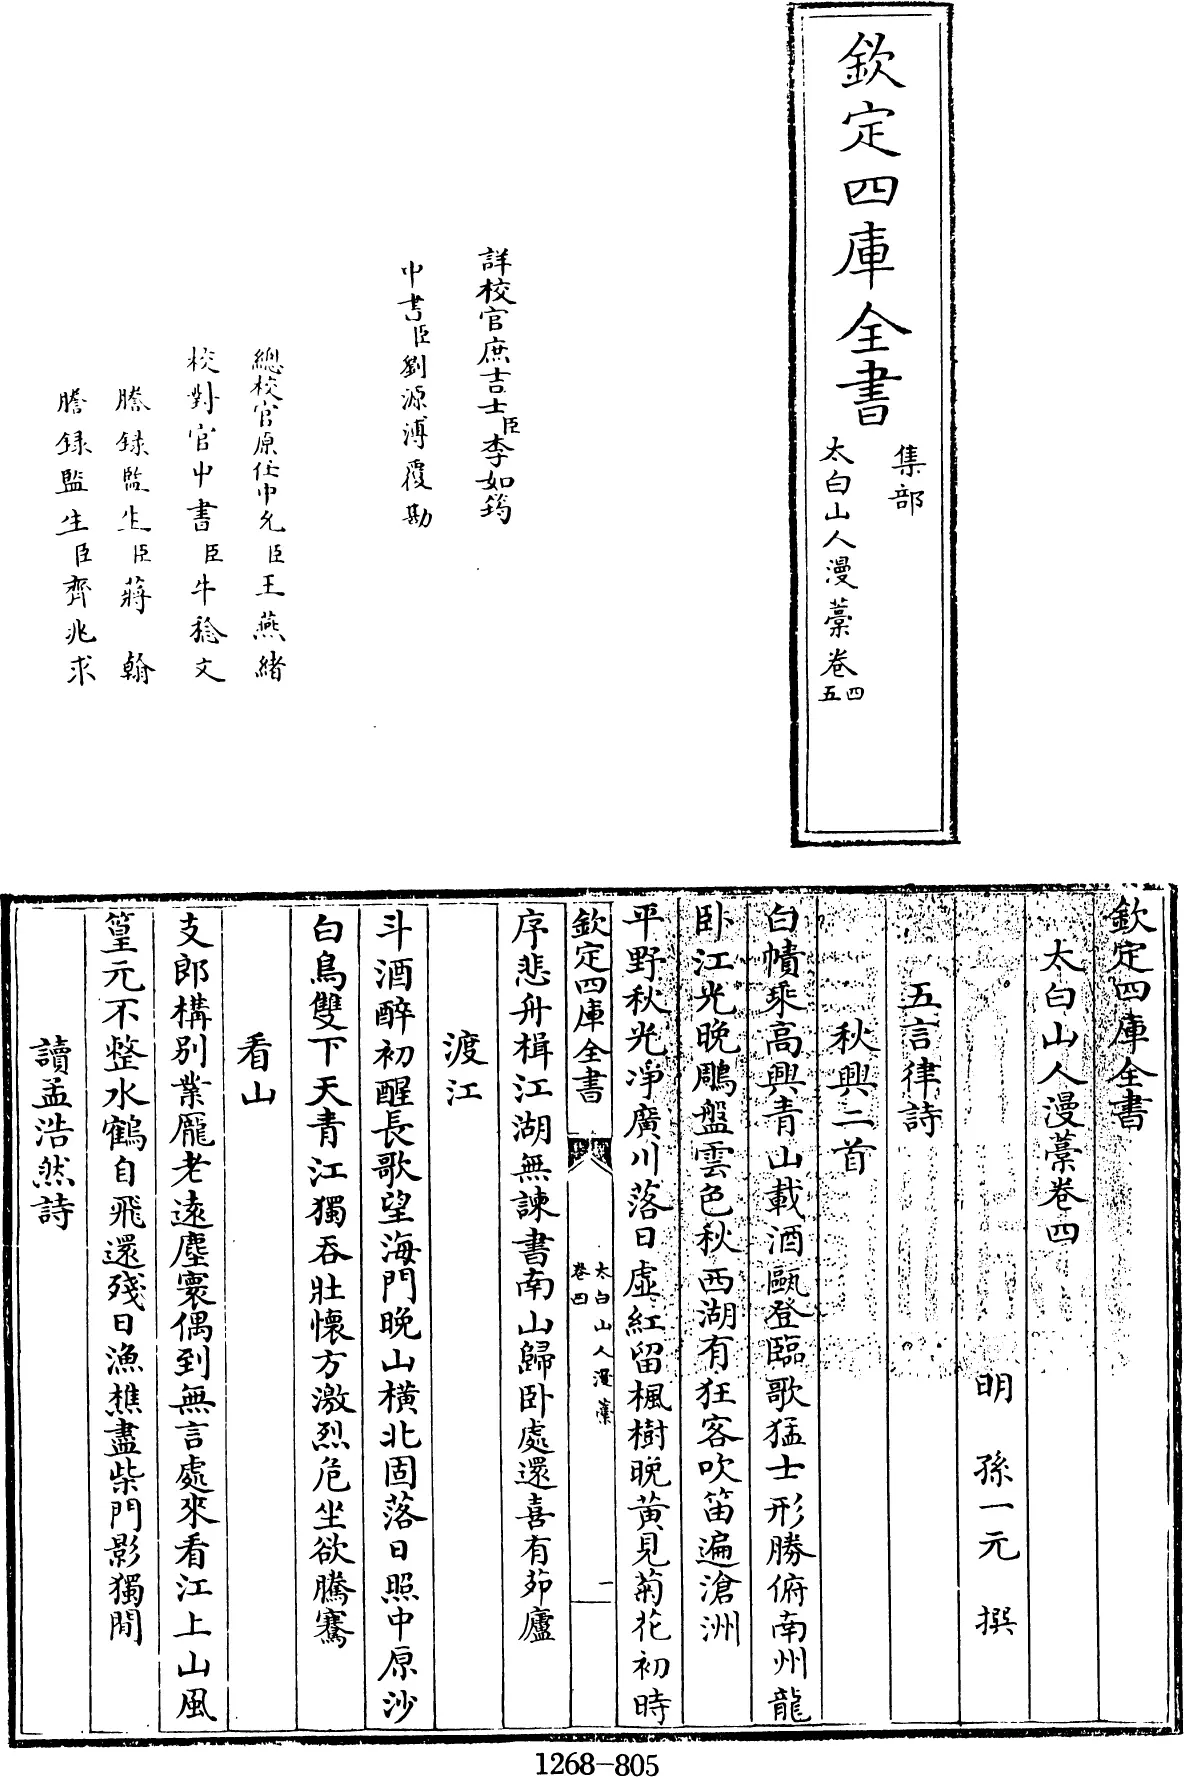 欽定四庫全書
集部
太白山人漫藁卷四五
詳校官庶吉士臣李如筠
中書臣劉源溥覆勘
總校官原任中允臣王燕緒
校對官中書臣牛稔文
謄録監生臣蔣翰
謄録監生臣齊兆求
欽定四庫全書
太白山人漫藁卷四
明 孫一元 撰
五言律詩
秋興二首
白幘乘高興青山載酒甌登臨歌猛士形勝俯南州龍
卧江光晚鵰盤雲色秋西湖有狂客吹笛遍滄洲
平野秋光淨廣川落日虛紅留楓樹晚黃見菊花初時
欽定四庫全書
太白山人漫藁
卷四
一
序悲舟楫江湖無諫書南山歸卧處還喜有茆廬
渡江
斗酒醉初醒長歌望海門晚山橫北固落日照中原沙
白鳥雙下天青江獨吞壯懷方激烈危坐欲騰騫
看山
支郎構別業龐老遠塵寰偶到無言處來看江上山風
篁元不整水鶴自飛還殘日漁樵盡柴門影獨閒
讀孟浩然詩
1268-805